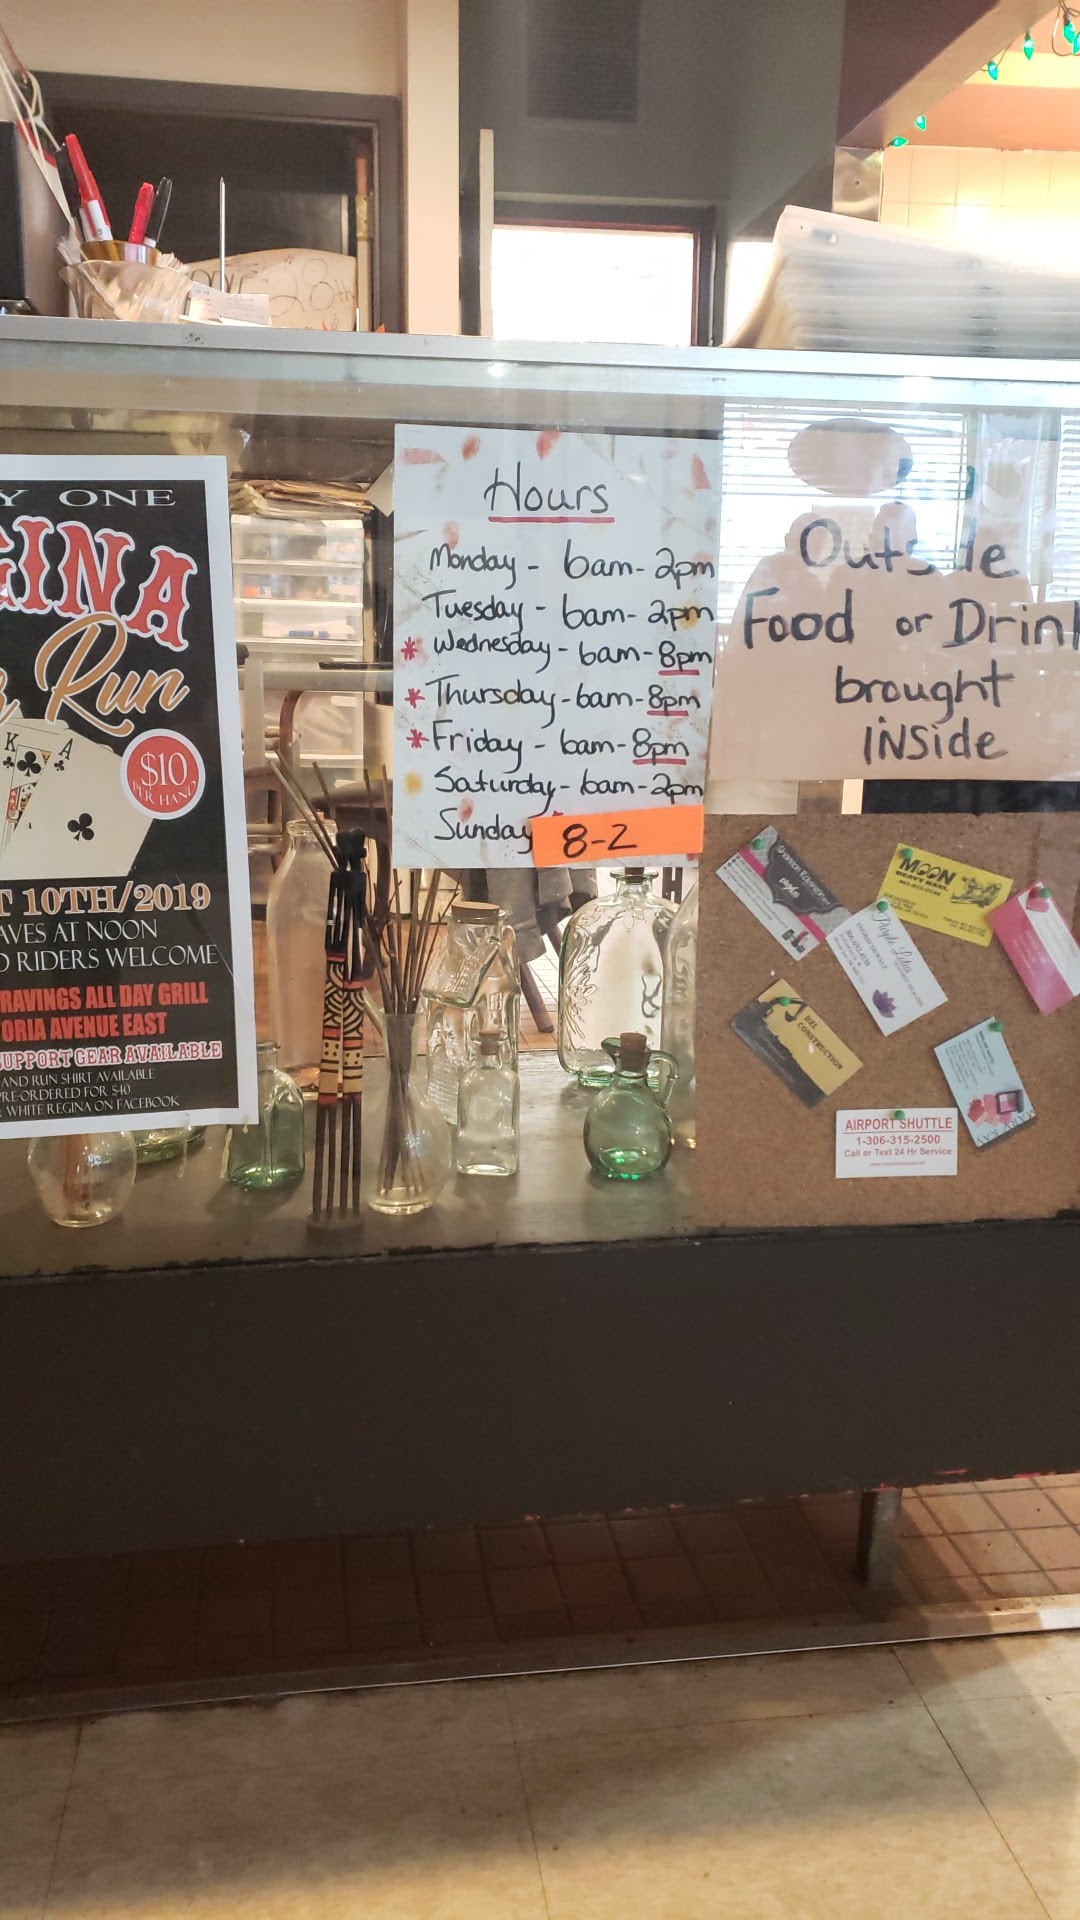 28th
Y ONE
GINA
Run
K
A
$10
PER HAND
T 10TH/2019
AVES AT NOON
D RIDERS WELCOME
RAVINGS ALL DAY GRILL
ORIA AVENUE EAST
SUPPORT GEAR AVAILABLE
AND RUN SHIRT AVAILABLE
PRE-ORDERED FOR $40
WHITE REGINA ON FACEBOOK
Hours
Monday - 6am-2pm
Tuesday - 6am-2pm
* Wednesday - 6am-8pm
* Thursday - 6am-8pm
* Friday - 6am-8pm
Saturday - 6am-2pm
Sunday 8-2
Outside
Food or Drink
brought
iNSide
MOON
HEAVY HAUL
Purple Lotus
DZL
CONSTRUCTION
MARY KAY
AIRPORT SHUTTLE
1-306-315-2500
Call or Text 24 Hr Service